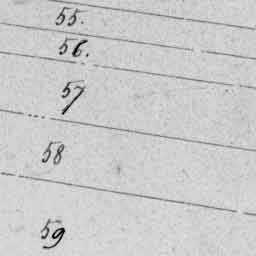 55.
56.
57
58
59